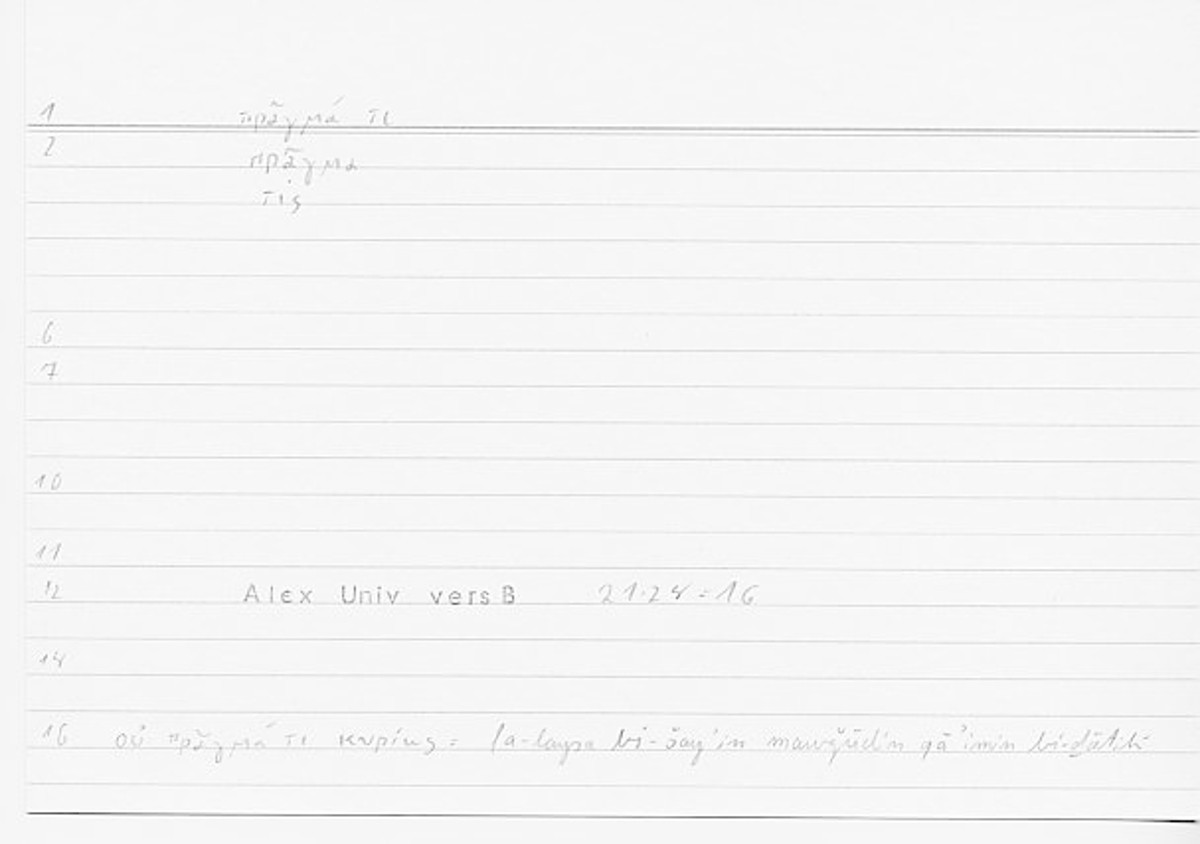 1 πρᾶγμά τι
2 πρᾶγμα
τις
6
7
10
11
12 Alex Univ vers B 21.28=16
14
16 οὐ πρᾶγμά τι κυρίως = fa-laysa bi-šayʾin mawǧūdin qāʾimin bi-ḏātihī